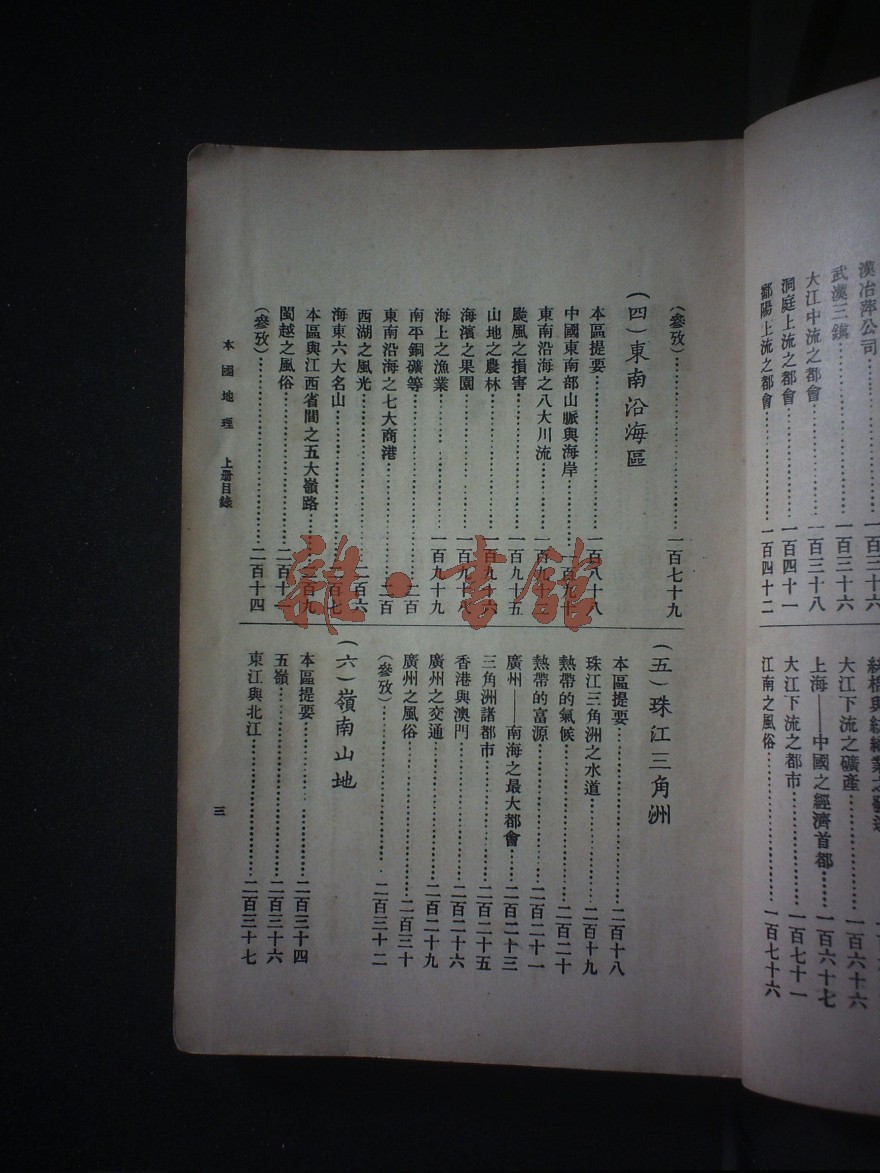 漢冶萍公司……一百三十六
武漢三鎮……一百三十六
大江中流之都會……一百三十八
洞庭上流之都會……一百四十一
鄱陽上流之都會……一百四十二
大江下流之礦產……一百六十六
上海——中國之經濟首都……一百六十七
大江下流之都市……一百七十一
江南之風俗……一百七十六
(參攷)……一百七十九
(四)東南沿海區
本區提要……一百八十八
中國東南部山脈與海岸……一百九十
東南沿海之八大川流……一百九十二
颱風之損害……一百九十五
山地之農林……一百九十六
海濱之果園……一百九十八
海上之漁業……一百九十九
南平銅礦等……二百
東南沿海之七大商港……二百
西湖之風光……二百六
海東六大名山……二百七
本區與江西省間之五大嶺路……二百九
閩越之風俗……二百十一
(參攷)……二百十四
(五)珠江三角洲
本區提要……二百十八
珠江三角洲之水道……二百十九
熱帶的氣候……二百二十
熱帶的富源……二百二十一
廣州——南海之最大都會……二百二十三
三角洲諸都市……二百二十五
香港與澳門……二百二十六
廣州之交通……二百二十九
廣州之風俗……二百三十
(參攷)……二百三十二
(六)嶺南山地
本區提要……二百三十四
五嶺……二百三十六
東江與北江……二百三十七
本國地理 上册目錄
三
雜·書館